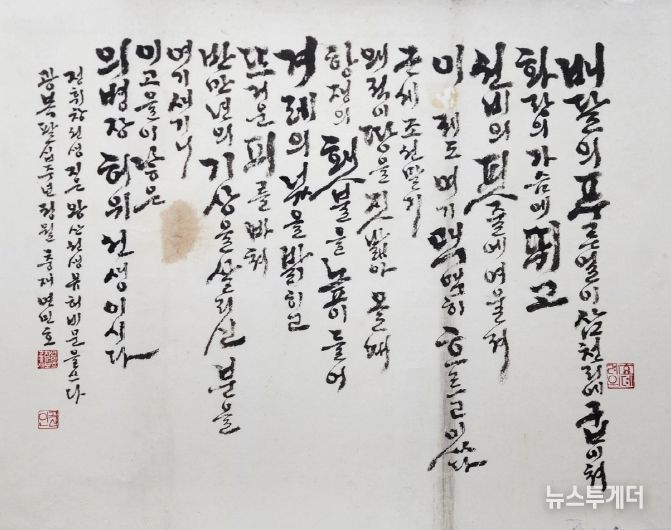 배달의 푸른 얼이 삼천리에 굽이쳐
화랑의 가슴에 뛰고
선비의 핏줄에 여울져
이제도 여기 맥맥히 흐르고 있다
근세 조선 말기
왜적이 땅을 짓밟아 올 때
항쟁의 횃불을 높이 들어
겨레의 넋을 밝히고
뜨거운 피를 바쳐
반만년의 기상을 살리신 분을
여기 새기니
이 고을이 낳은
의병장 허위 선생이시다
정휘창 선생 짓은 왕산 선생 유허비문을 쓰다
광복 팔십주년 정월 중재 면민호
뉴스투게더